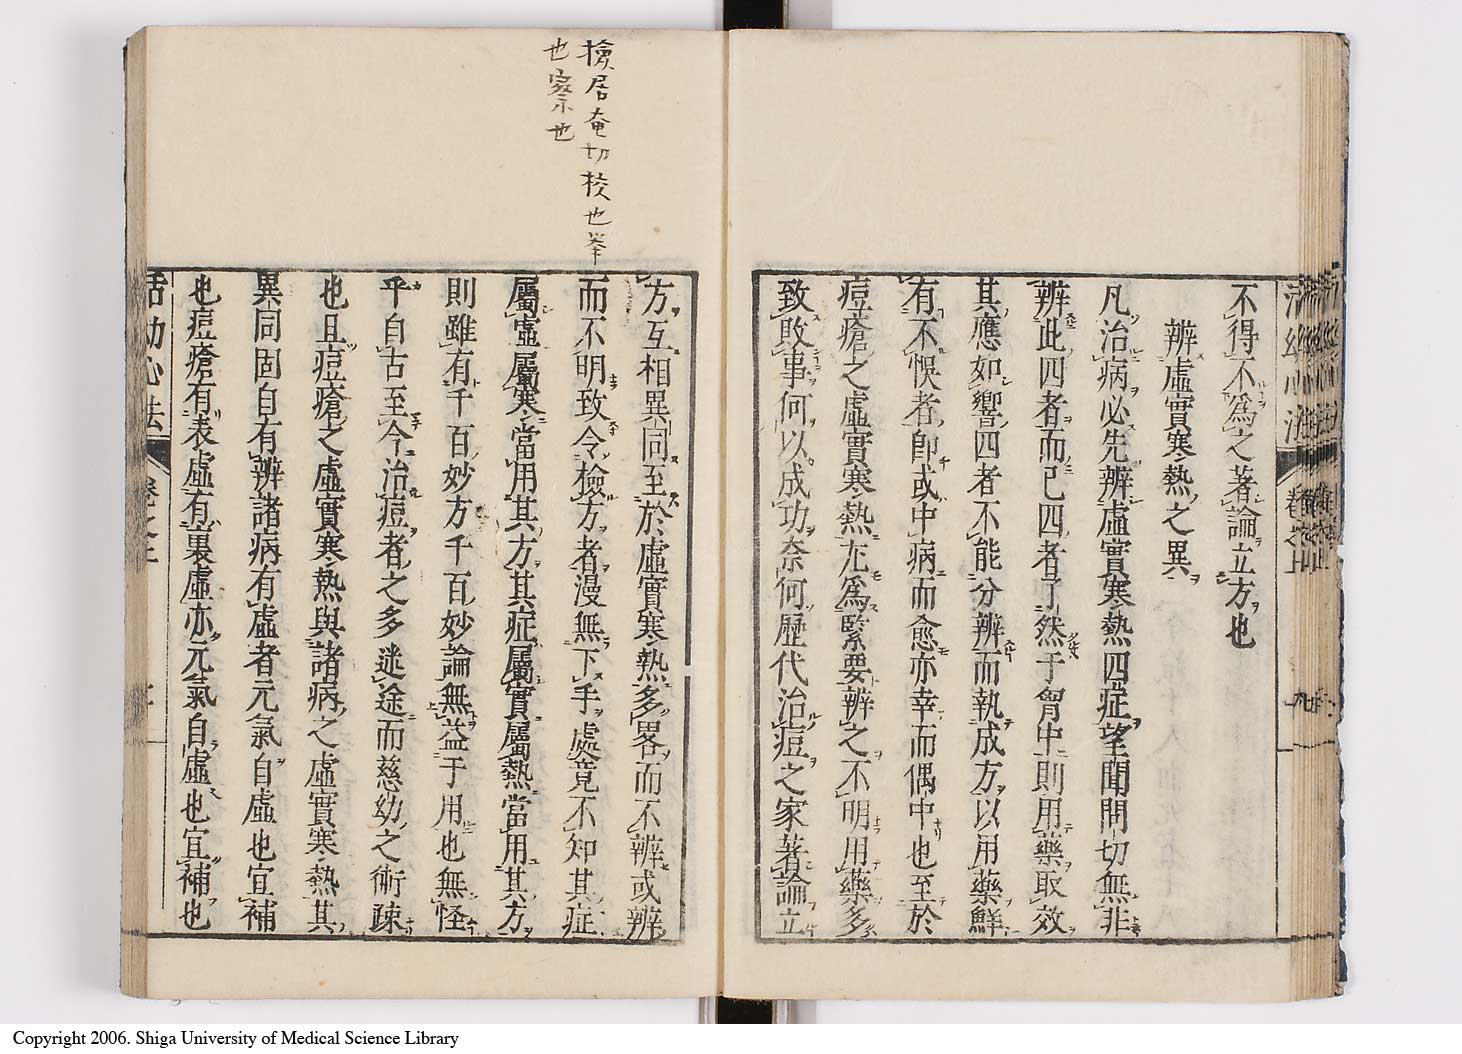 不得不爲之著論立方也
辨虛實寒熱之異
凡治病必先辨虛實寒熱四症望聞問切無非
辨此四者而已四者了然于胷中則用藥取效
其應如響四者不能分辨而執成方以用藥鮮
有不悞者卽或中病而愈亦幸而偶中也至於
痘瘡之虛實寒熱尤爲緊要辨之不明用藥多
致敗事何以成功奈何歷代治痘之家著論立
方互相異同至於虛實寒熱多畧而不辨或辨
而不明致令檢方者漫無下手處竟不知其症
屬虛屬寒當用其方其症屬實屬熱當用其方
則雖有千百妙方千百妙論無益于用也無怪
乎自古至今治痘者之多迷途而慈幼之術疎
也且痘瘡之虛實寒熱與諸病之虛實寒熱其
異同固自有辨諸病有虛者元氣自虛也宜補
也痘瘡有表虛有裏虛亦元氣自虛也宜補也
活幼心法
卷之上
檢居奄切校也举
也察也
Copyright 2006. Shiga University of Medical Science Library